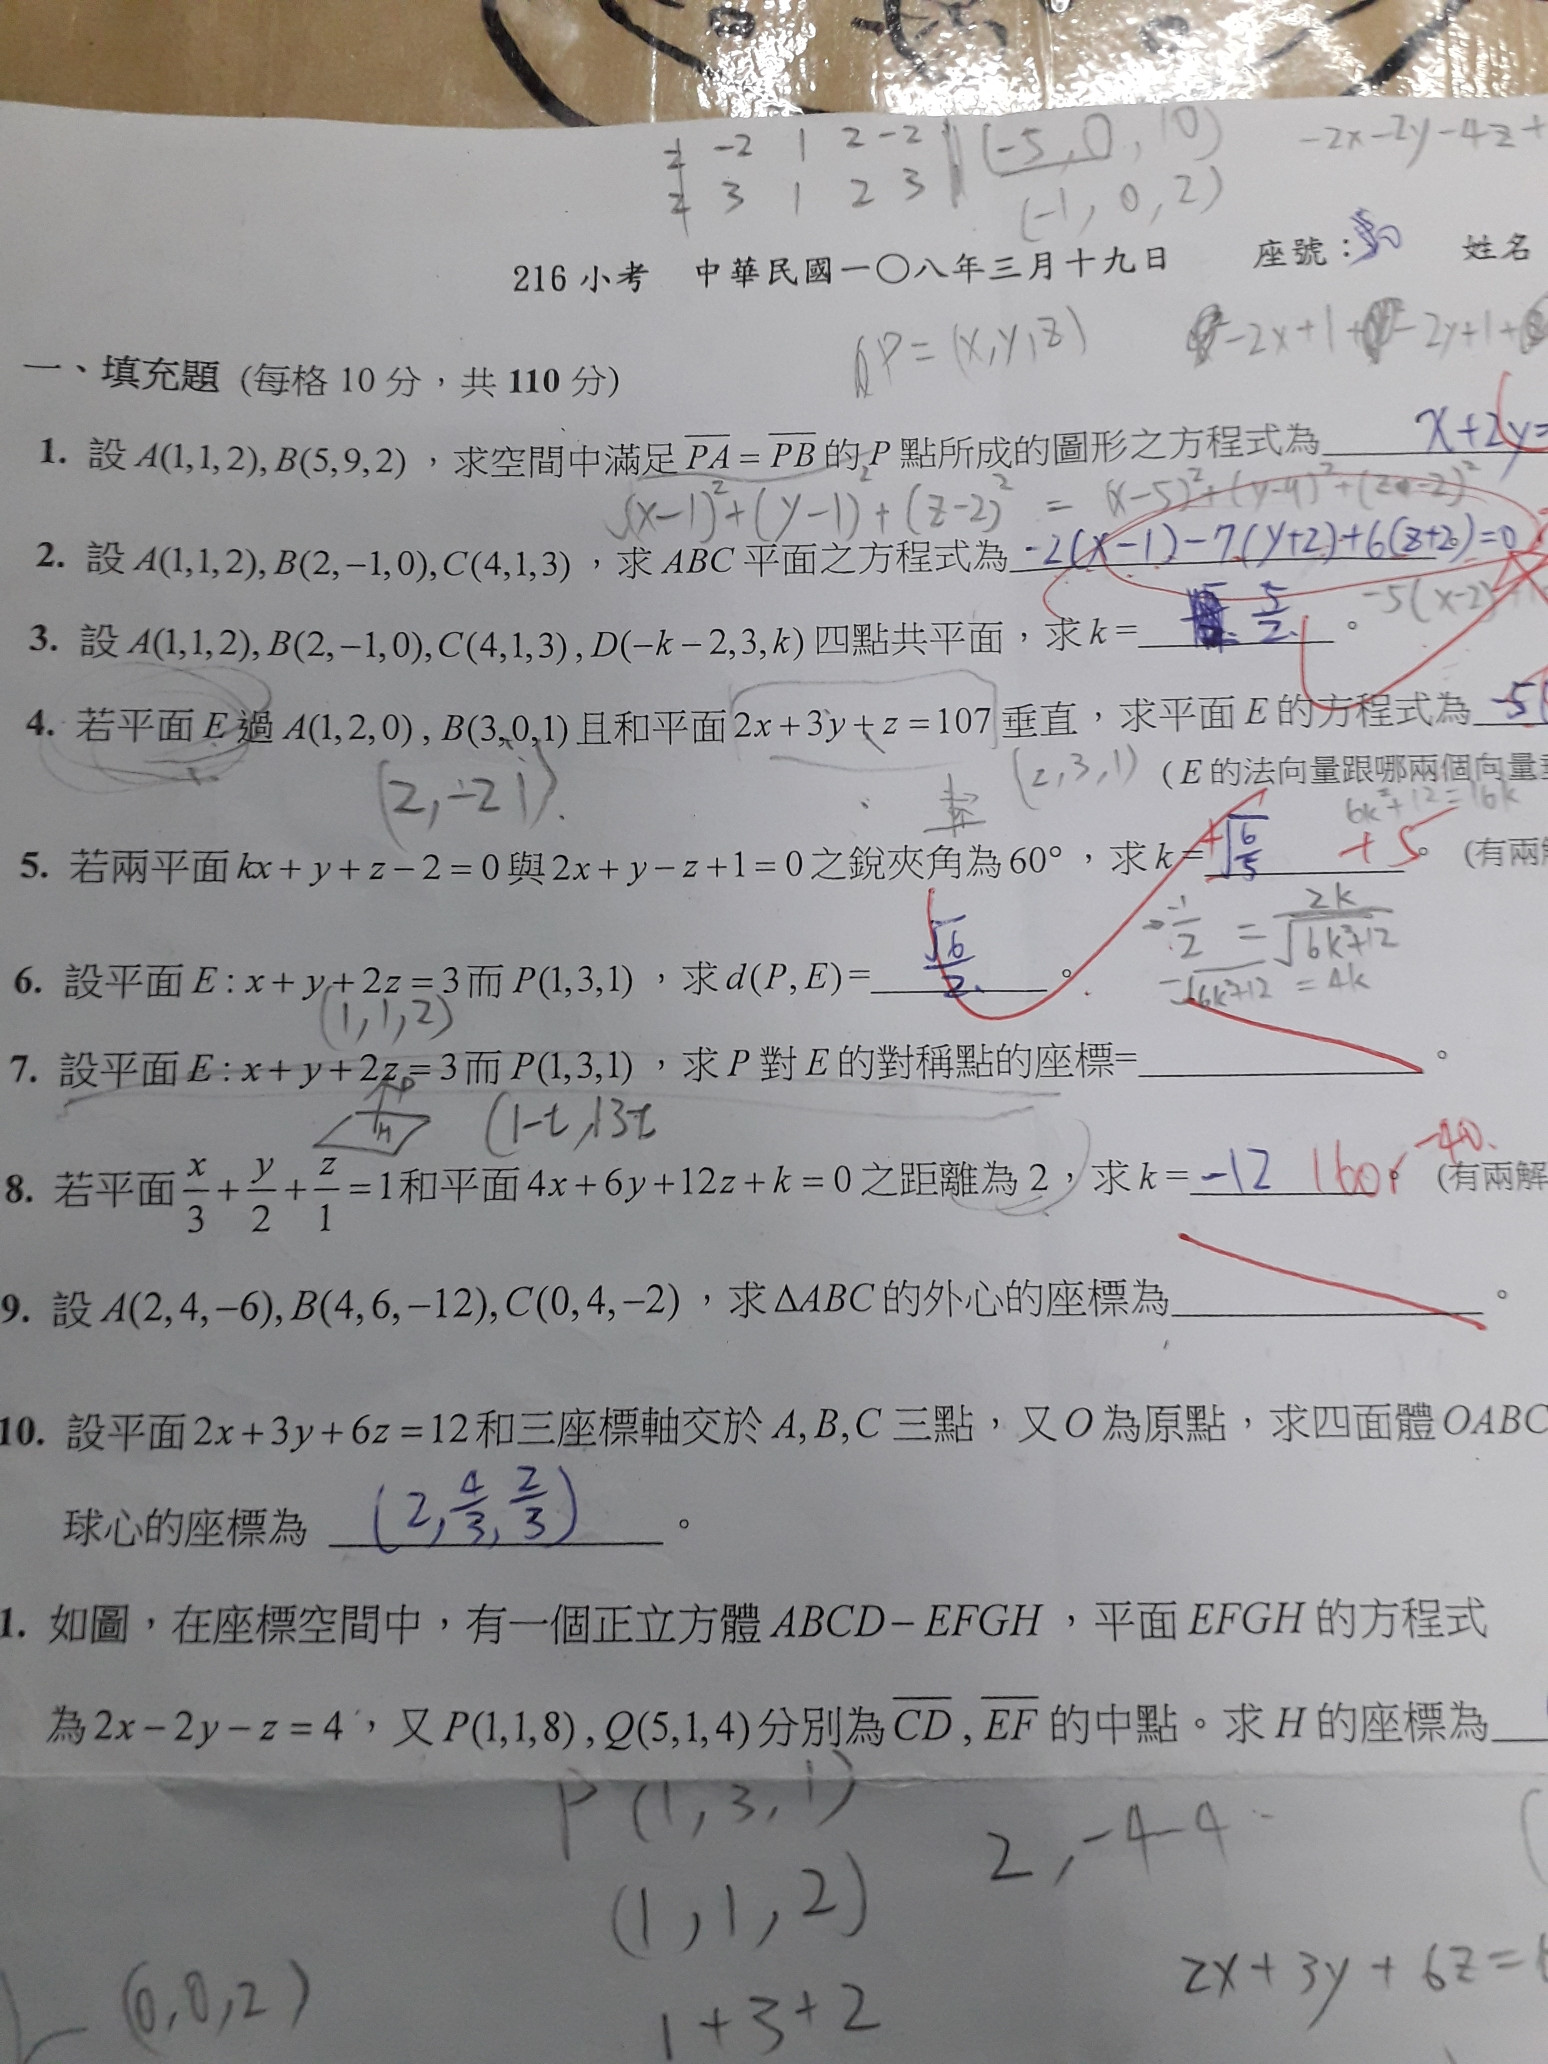 -2 1 2 -2 (-5, 0, 10) -2x-2y-4z+
3 1 2 3 (-1, 0, 2)
216 小考 中華民國一〇八年三月十九日 座號： 姓名
P=(x,y,z) -2x+1+ -2y+1+
一、填充題 (每格 10 分，共 110 分)
1. 設 A(1,1,2), B(5,9,2) ，求空間中滿足 \overline{PA} = \overline{PB} 的 P 點所成的圖形之方程式為 x+2y=
(x-1)²+(y-1)²+(z-2)² = (x-5)²+(y-9)²+(z-2)²
2. 設 A(1,1,2), B(2,−1,0), C(4,1,3) ，求 ABC 平面之方程式為 -2(x-1)-7(y+2)+6(z+2)=0
-5(x-2)
3. 設 A(1,1,2), B(2,−1,0), C(4,1,3) , D(−k−2,3,k) 四點共平面，求 k = 5/2 。
4. 若平面 E 過 A(1,2,0) , B(3,0,1) 且和平面 2x+3y+z=107 垂直，求平面 E 的方程式為 -5
(2,-2 1) (2,3,1) (E 的法向量跟哪兩個向量
6k²+12=16k
5. 若兩平面 kx+y+z−2=0 與 2x+y−z+1=0 之銳夾角為 60° ，求 k = √(6/5) +5 。 (有兩
1/2 = 2k/√(6k²+12)
√(6k²+12) = 4k
6. 設平面 E : x+y+2z=3 而 P(1,3,1) ，求 d(P,E)= √6/2 。
(1,1,2)
7. 設平面 E : x+y+2z=3 而 P(1,3,1) ，求 P 對 E 的對稱點的座標= 。
(1-t, 3t
8. 若平面 x/3 + y/2 + z/1 = 1 和平面 4x+6y+12z+k=0 之距離為 2，求 k = -12 16or-40. 。 (有兩解
9. 設 A(2,4,−6), B(4,6,−12), C(0,4,−2) ，求 ΔABC 的外心的座標為 。
10. 設平面 2x+3y+6z=12 和三座標軸交於 A,B,C 三點，又 O 為原點，求四面體 OABC
球心的座標為 (2, 4/3, 2/3) 。
1. 如圖，在座標空間中，有一個正立方體 ABCD−EFGH ，平面 EFGH 的方程式
為 2x−2y−z=4 ，又 P(1,1,8) , Q(5,1,4) 分別為 \overline{CD} , \overline{EF} 的中點。求 H 的座標為
P (1,3,1)
2,-4-4
(1,1,2)
(0,0,2)
2x+3y+6z=
1+3+2